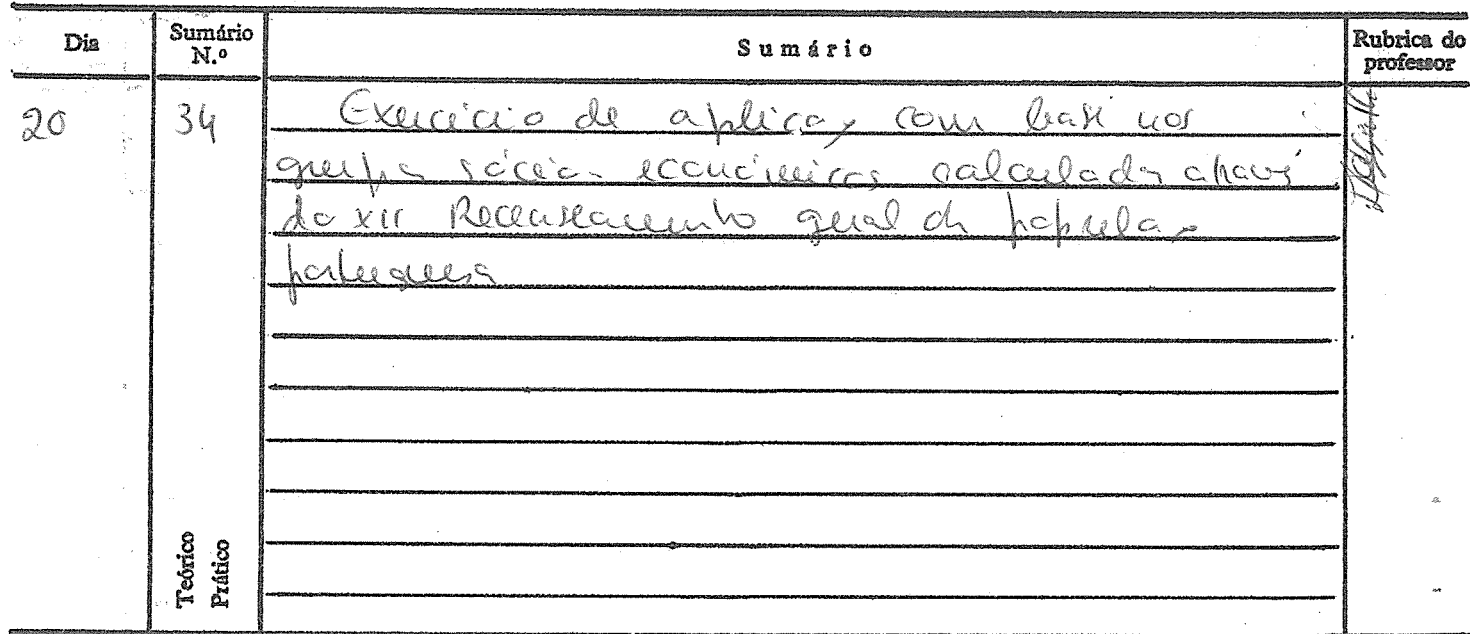 Dia
Sumário
N.º
Sumário
Rubrica do
professor
20
34
Exercício de aplicação com base nos
grupos sócio-económicos calculados através
do XII Recenseamento geral da população
portuguesa
Teórico
Prático